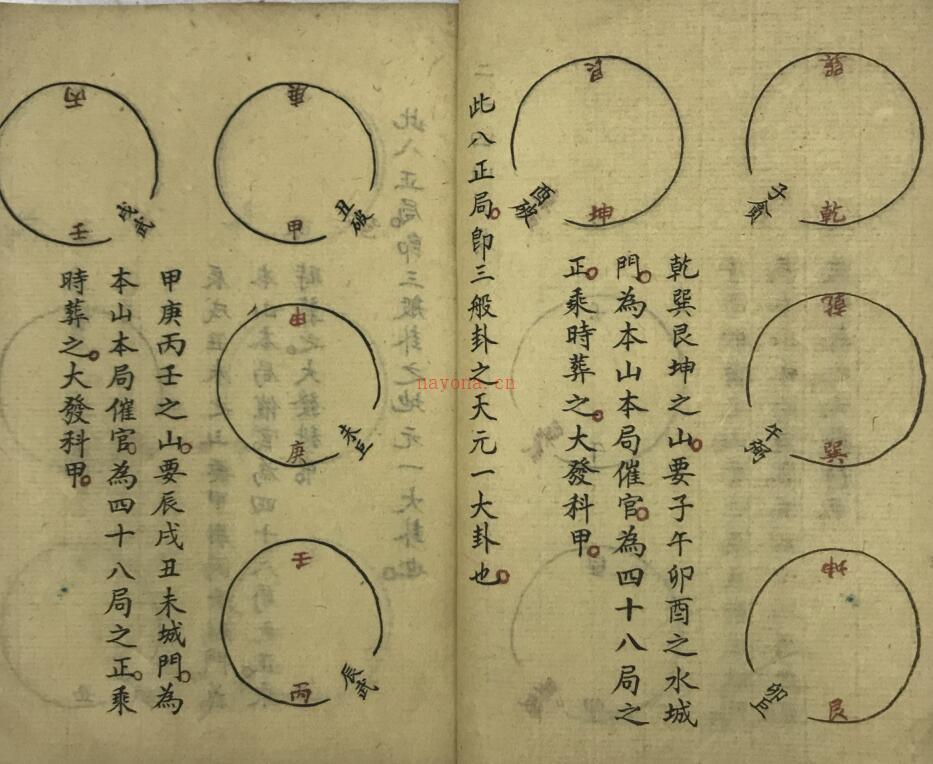 巽
乾
子貪
乾
巽
午弼
坤
艮
卯巨
艮
坤
酉破
乾巽艮坤之山。要子午卯酉之水城
門。為本山本局催官。為四十八局之
正。乘時葬之。大發科甲。
此八正局。即三般卦之天元一大卦也。
庚
甲
丑破
甲
庚
未巨
壬
丙
辰武
丙
壬
戌武
甲庚丙壬之山。要辰戌丑未城門。為
本山本局催官。為四十八局之正。乘
時葬之。大發科甲。
nayona.cn